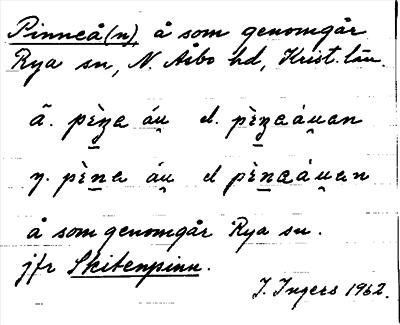 Pinneå(n), å som genomgår
Rya sn, N. Åsbo hd, Krist. län.
ä. pèṉa áu̯ el. pèṉaáu̯an
y. pèṉa áu̯ el pèṉaáu̯an
å som genomgår Rya sn.
jfr Skitenpinn.
I. Ingers 1962.